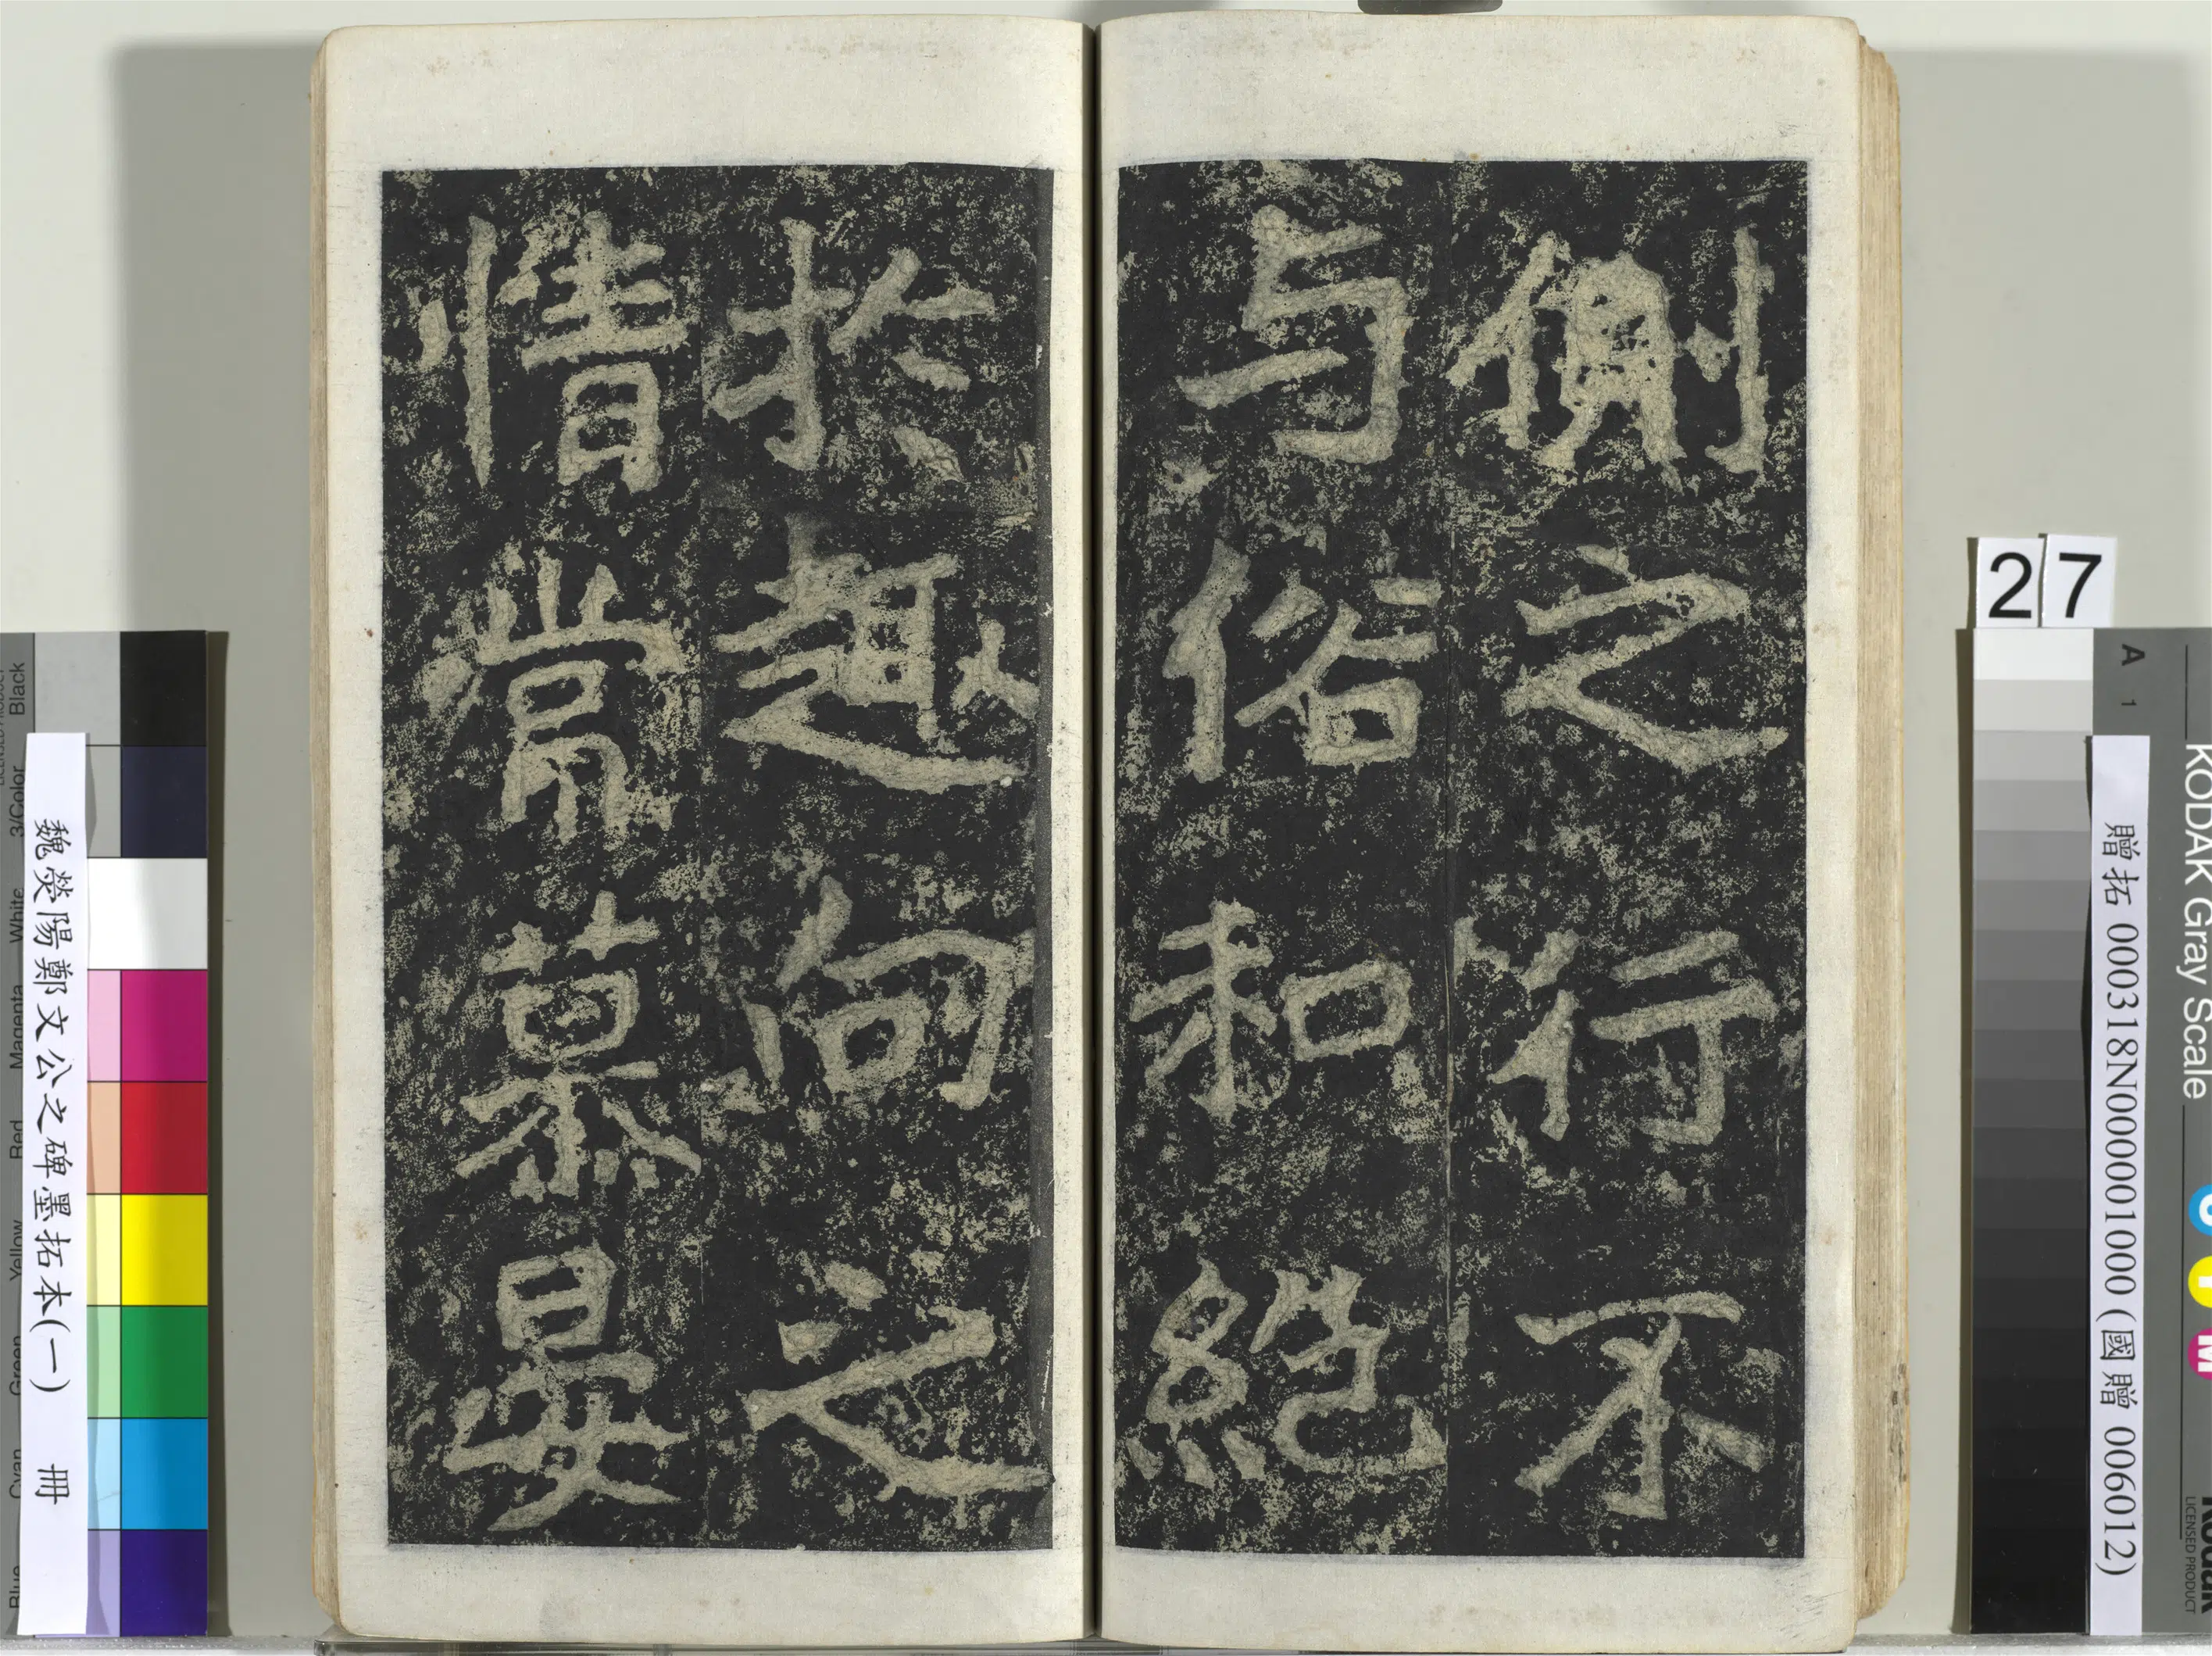 側之行不
与俗和絕
於趣向之
情常慕晏
27
魏滎陽鄭文公之碑墨拓本(一) 冊
贈拓 000318N000001000 (國贈 006012)
KODAK Gray Scale
A 1
C
Y
M
Kodak
LICENSED PRODUCT
Black
3/Color
White
Magenta
Red
Yellow
Green
Cyan
Blue